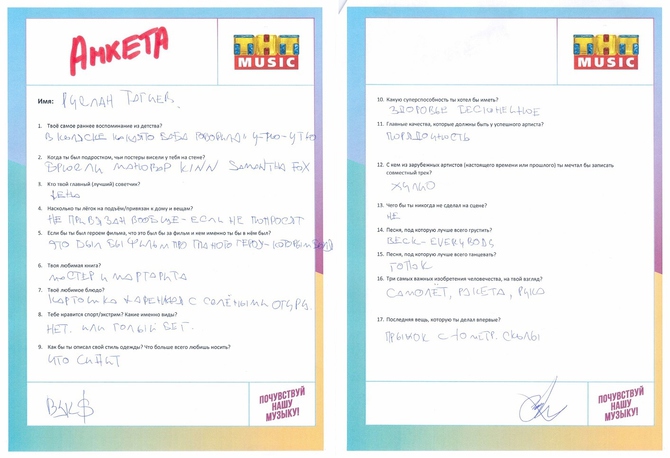 АНКЕТА
ТНТ
MUSIC
Имя: РУСЛАН ТАГИЕВ
1. Твоё самое раннее воспоминание из детства?
В КОЛЯСКЕ БАБА ГОВОРИЛА: У-ТЮ-УТЮ
2. Когда ты был подростком, чьи постеры висели у тебя на стене?
БРЮСЛИ МАНОВАР SAMANTHA FOX
3. Кто твой главный (лучший) советчик?
ДЕНЬ
4. Насколько ты лёгок на подъём/привязан к дому и вещам?
НЕ ПРИВЯЗАН ВООБЩЕ - ЕСЛИ НЕ ПОПРОСЯТ
5. Если бы ты был героем фильма, что это был бы за фильм и кем именно ты бы в нём был?
ЭТО БЫЛ БЫ ФИЛЬМ ПРО ГЕРОЯ -
6. Твоя любимая книга?
МАСТЕР И МАРГАРИТА
7. Твоё любимое блюдо?
КАРТОШКА ЖАРЕННАЯ С СОЛЁНЫМИ ОГУРЦ.
8. Тебе нравится спорт/экстрим? Какие именно виды?
НЕТ. ИЛИ ГОЛЫЙ БЕГ.
9. Как бы ты описал свой стиль одежды? Что больше всего любишь носить?
ЧТО СИДИТ
ПОЧУВСТВУЙ
НАШУ
МУЗЫКУ!
ТНТ
MUSIC
10. Какую суперспособность ты хотел бы иметь?
ЗДОРОВЬЕ БЕСКОНЕЧНОЕ
11. Главные качества, которые должны быть у успешного артиста?
ПОРЯДОЧНОСТЬ
12. С кем из зарубежных артистов (настоящего времени или прошлого) ты мечтал бы записать
совместный трек?
ХУЛИО
13. Чего бы ты никогда не сделал на сцене?
НЕ
14. Песня, под которую лучше всего грустить?
BECK - EVERYBODY
15. Песня, под которую лучше всего танцевать?
ТОПОК
16. Три самых важных изобретения человечества, на твой взгляд?
САМОЛЁТ, РАКЕТА,
17. Последняя вещь, которую ты делал впервые?
ПРЫЖОК С 10 МЕТР. СКАЛЫ
ПОЧУВСТВУЙ
НАШУ
МУЗЫКУ!